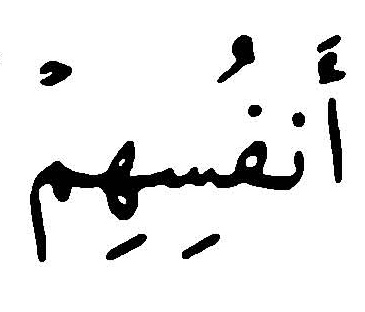 أَنفُسِهِمْ